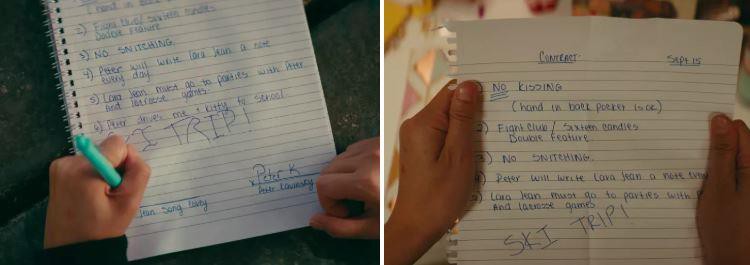 (hand in back
2) Fight Club/ Sixteen candles
Double Feature
3) NO SNITCHING
4) Peter will write Lara Jean a note
every day.
5) Lara Jean must go to parties with Peter
And lacrosse games
6) Peter drives me + kitty to school
SKI TRIP!
Peter K
x
Peter Kavinsky
Jean Song Covey
CONTRACT
Sept 15
NO KISSING
(hand in back pocket is ok)
2) Fight Club/ Sixteen candles
Double Feature
3) NO SNITCHING.
4) Peter will write Lara Jean a note every
5) Lara Jean must go to parties with P
And lacrosse games
SKI TRIP!